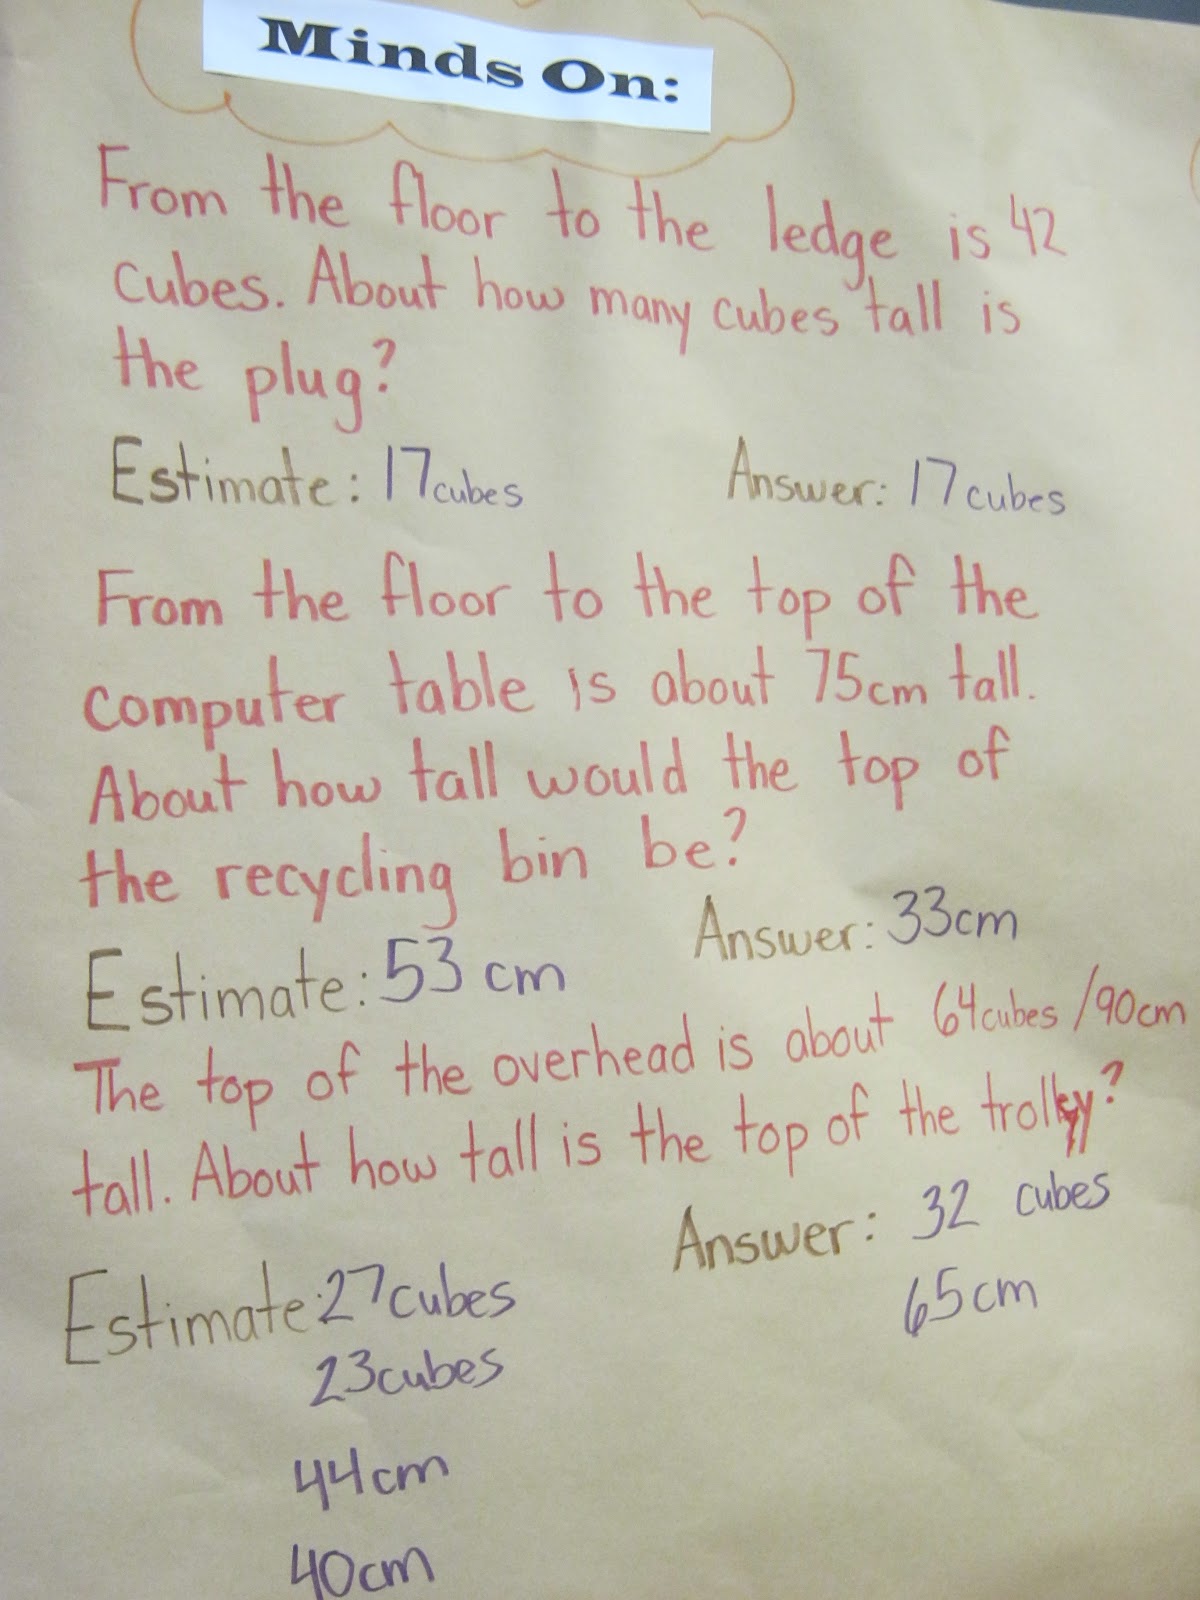 Minds On:
From the floor to the ledge is 42
cubes. About how many cubes tall is
the plug?
Estimate: 17cubes Answer: 17cubes
From the floor to the top of the
computer table is about 75cm tall.
About how tall would the top of
the recycling bin be?
Estimate: 53 cm Answer: 33cm
The top of the overhead is about 64cubes/90cm
tall. About how tall is the top of the trolley?
Estimate: 27cubes Answer: 32 cubes
23cubes 65cm
44cm
40cm